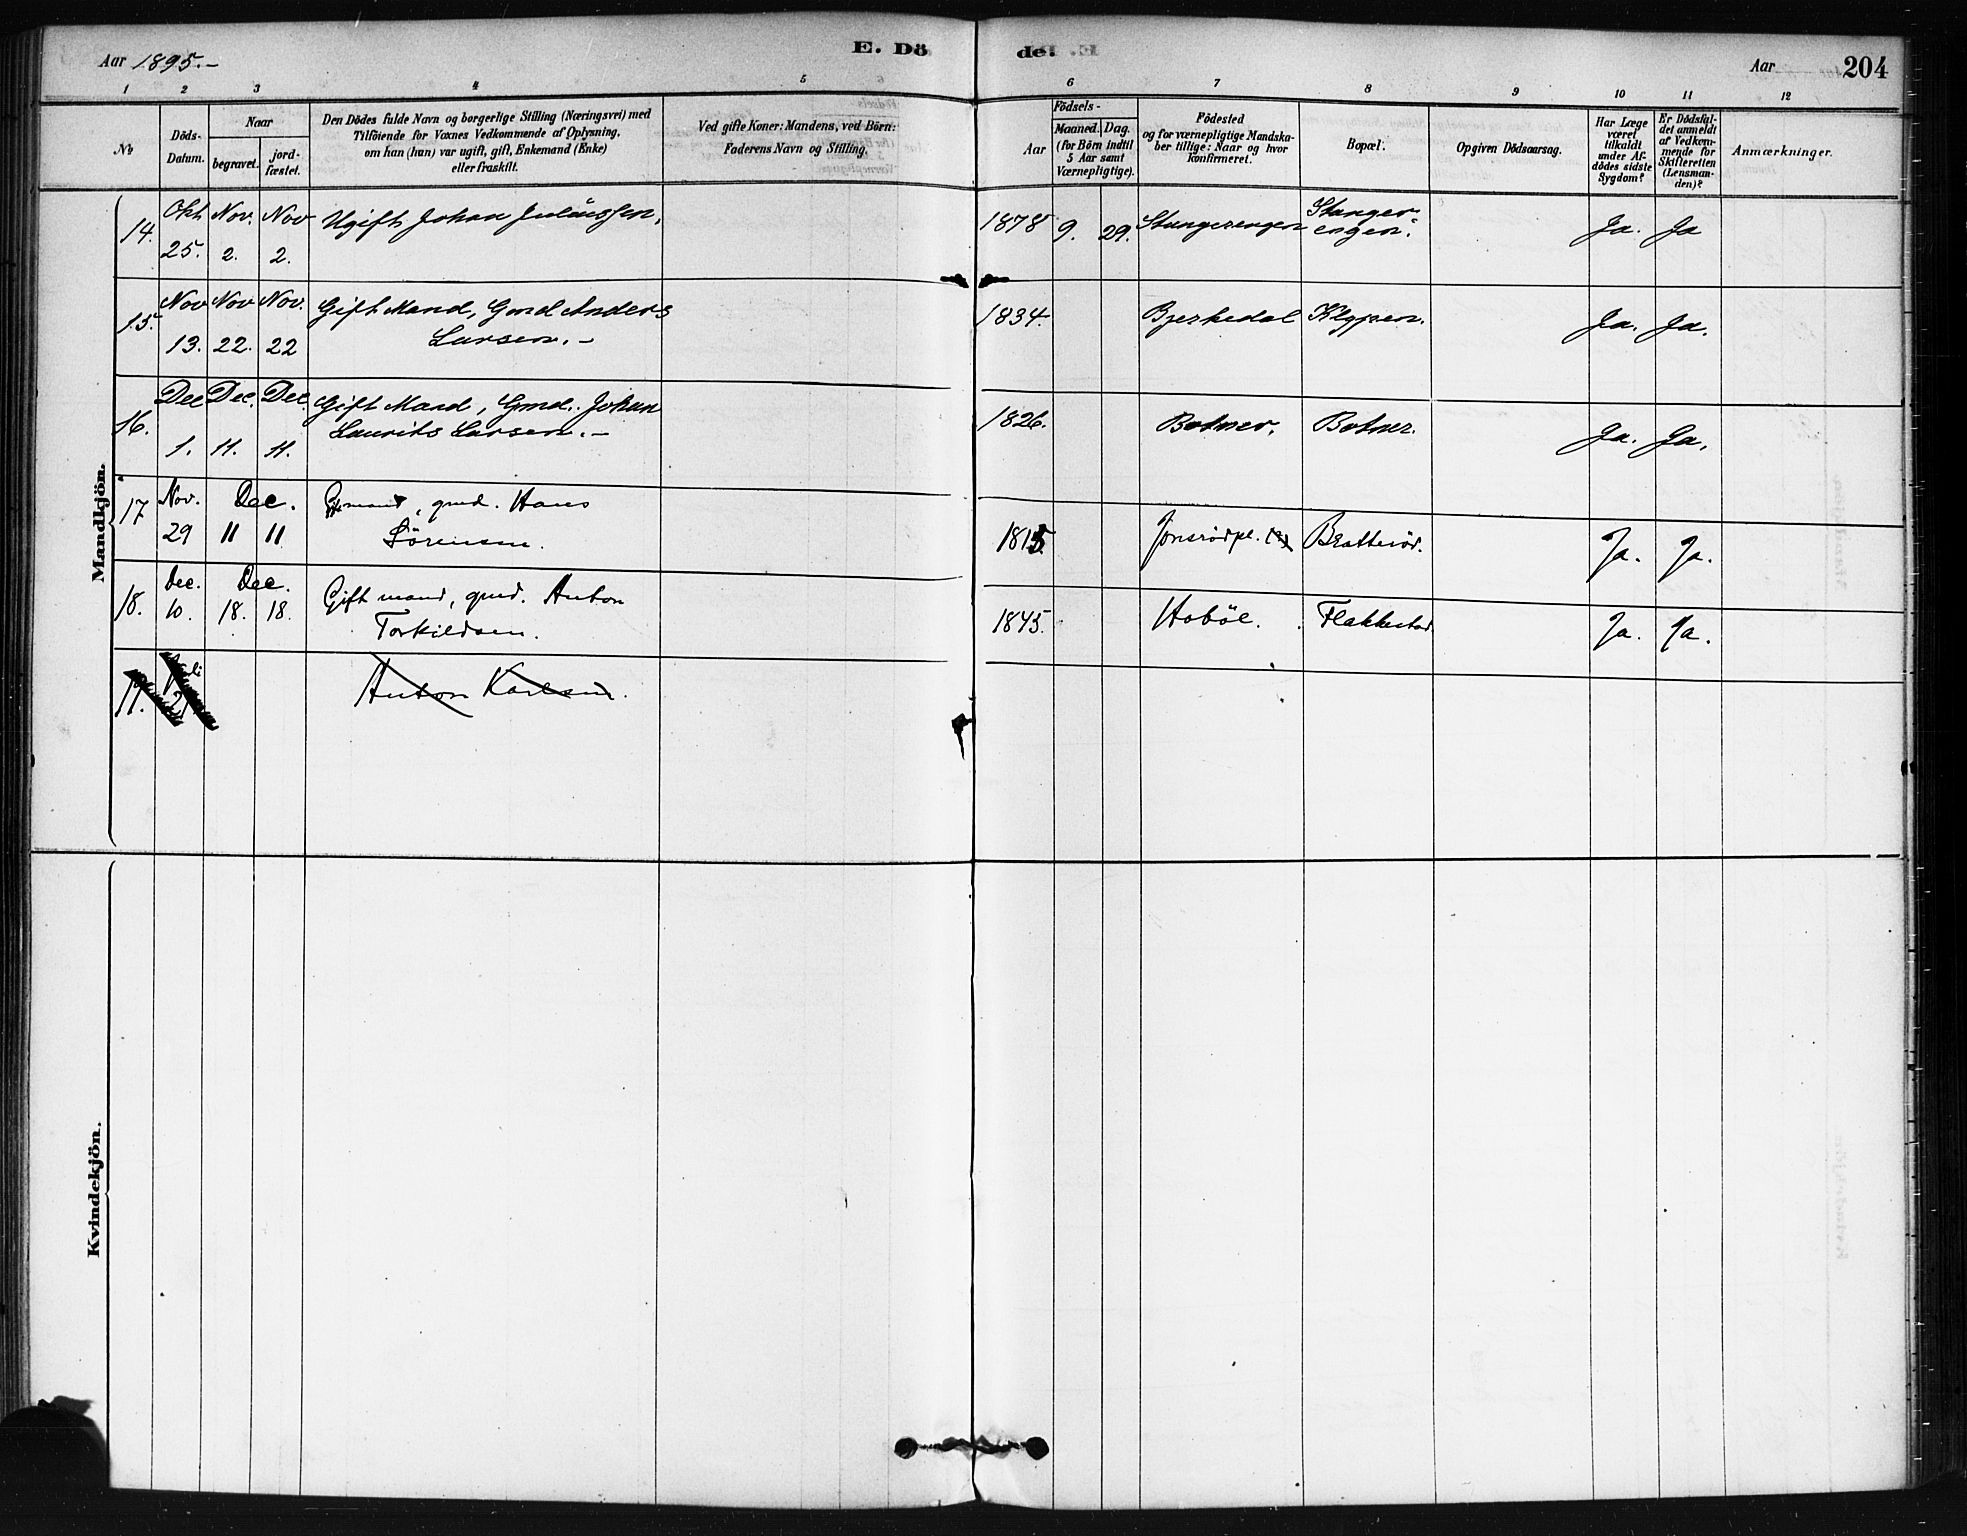 Aar 1895.-
E. Dö
de.
Aar
204
1 2 3 4 5 6 7 8 9 10 11 12
No
Döds-
Datum.
Naar
begravet.
jord-
fæstet.
Den Dödes fulde Navn og borgerlige Stilling (Næringsvei) med
Tilföiende for Voxnes Vedkommende af Oplysning,
om han (hun) var ugift, gift, Enkemand (Enke)
eller fraskilt.
Ved gifte Koner: Mandens, ved Börn:
Faderens Navn og Stilling.
Födsels-
Aar
Maaned. Dag.
(for Börn indtil
5 Aar samt
Værnepligtige).
Födested
og for værnepligtige Mandska-
ber tillige: Naar og hvor
konfirmeret.
Bopæl.
Opgiven Dödsaarsag.
Har Læge
været
tilkaldt
under Af-
dödes sidste
Sygdom?
Er Dödsfal-
det anmeldt
af Vedkom-
mende for
Skifteretten
(Lensman-
den)?
Anmærkninger.
Mandkjön.
14. Okt 25. Nov. 2. Nov 2. Ugift Johan Juliussen, 1878 9. 29. Stangerengen Stanger-
engen. Ja. Ja
15. Nov 13. Nov 22. Nov. 22 Gift Mand, Gmd Anders
Larsen.- 1834. Bjerkedal Klypen. Ja. Ja.
16. Dec 1. Dec. 11. Dec. 11. Gift Mand, Gmd. Johan
Laurits Larsen.- 1826. Botner. Botner. Ja. Ja.
17 Nov. 29 Dec. 11 11 gmd. Hans
Sörensen. 1815 Jonsrödpl. (?) Bratteröd. Ja. Ja.
18. Dec. 10. Dec. 18. 18. Gift mand, gmd. Anton
Torkildsen. 1845. Hobøl. Flakkestad. Ja. Ja.
19. Anton Karlsen.
Kvindekjön.